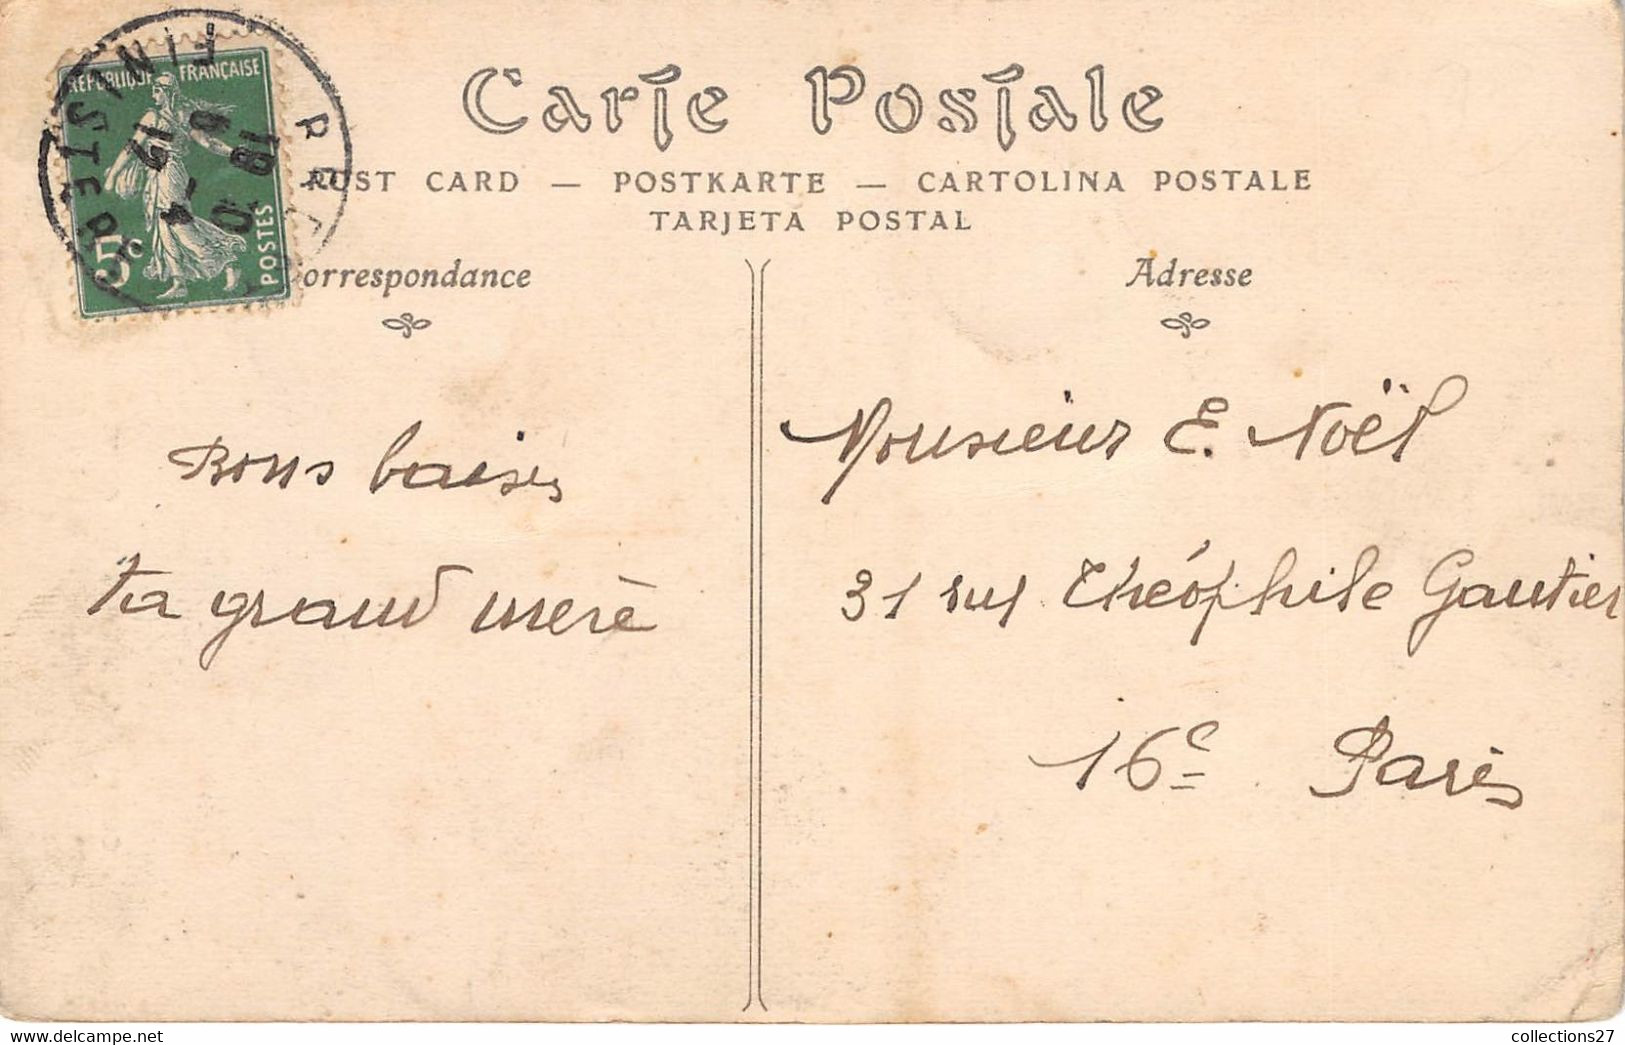 RÉPUBLIQUE FRANÇAISE
5c POSTES
FINISTERE
Carte Postale
POST CARD — POSTKARTE — CARTOLINA POSTALE
TARJETA POSTAL
Correspondance
Adresse
Bons baisers
ta grand mère
Monsieur E. Noël
31 rue Théophile Gautier
16e Paris
www.delcampe.net
collections27